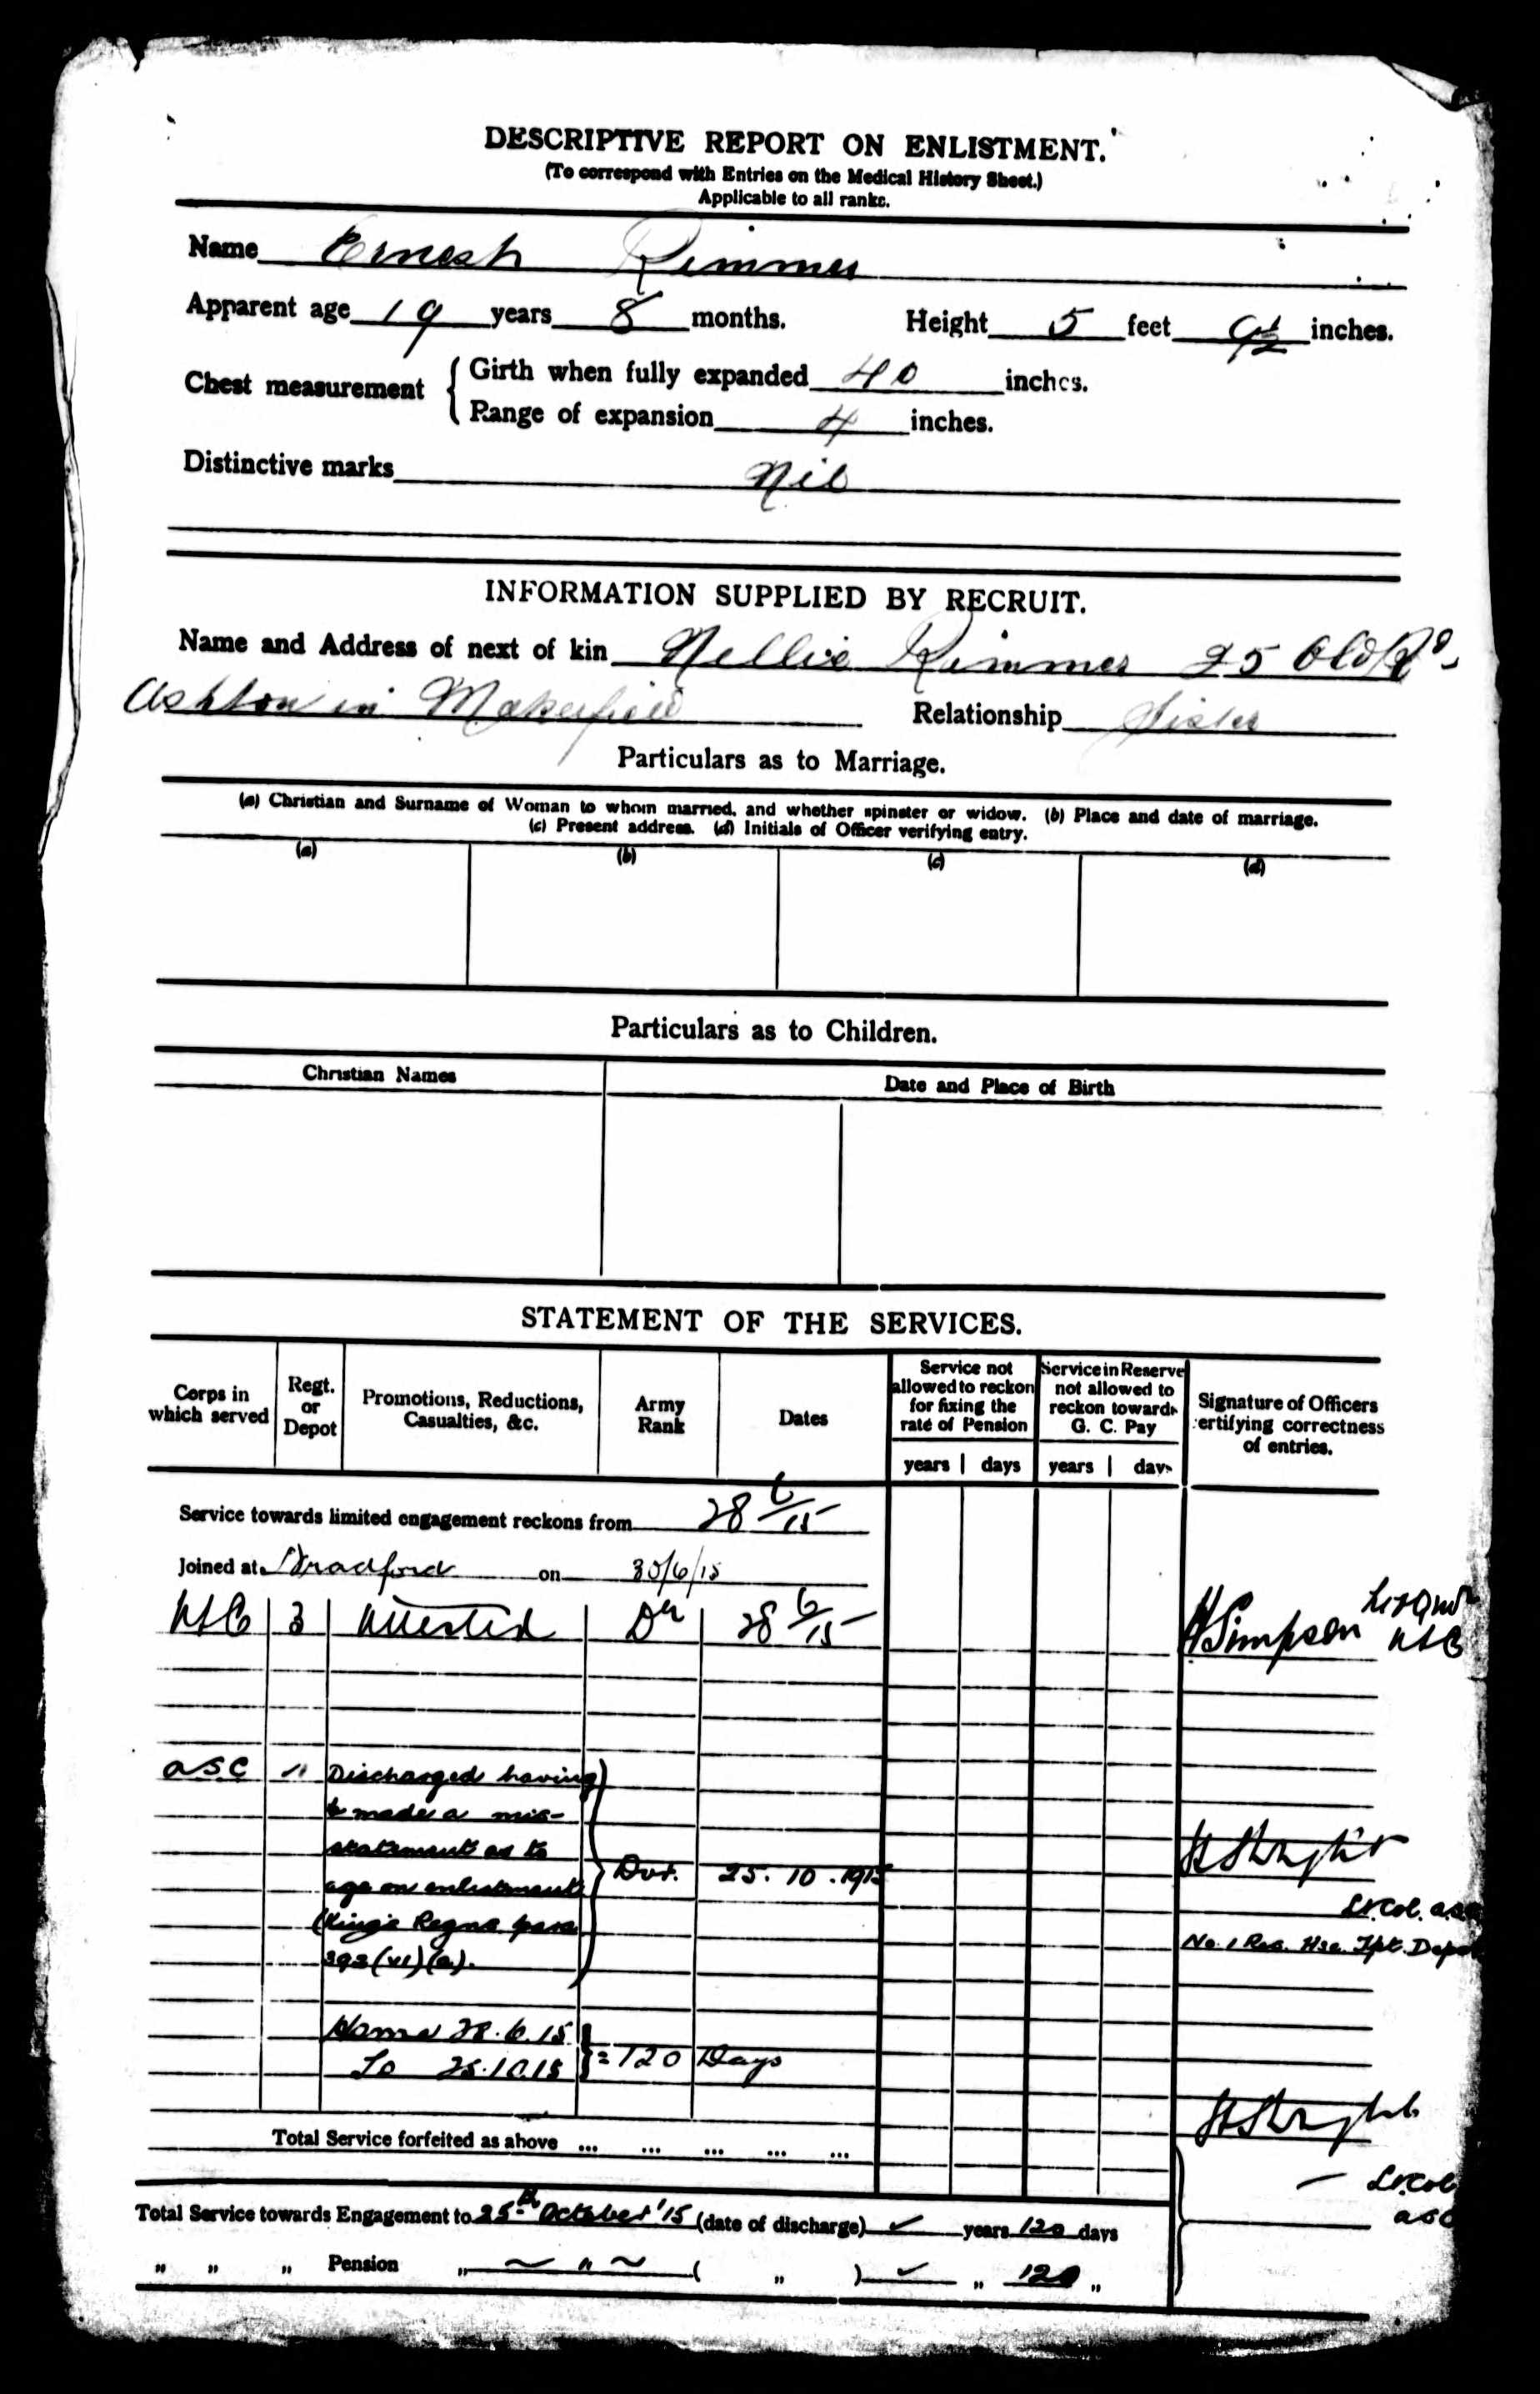 DESCRIPTIVE REPORT ON ENLISTMENT.
(To correspond with Entries on the Medical History Sheet.)
Applicable to all ranks.
Name Ernest Rimmer
Apparent age 19 years 8 months. Height 5 feet 9½ inches.
Chest measurement { Girth when fully expanded 40 inches.
Range of expansion 4 inches.
Distinctive marks Nil
INFORMATION SUPPLIED BY RECRUIT.
Name and Address of next of kin Nellie Rimmer 25 Old Rd
Ashton in Makerfield Relationship Sister
Particulars as to Marriage.
(a) Christian and Surname of Woman to whom married, and whether spinster or widow. (b) Place and date of marriage.
(c) Present address. (d) Initials of Officer verifying entry.
(a) (b) (c) (d)
Particulars as to Children.
Christian Names Date and Place of Birth
STATEMENT OF THE SERVICES.
Corps in which served
Regt. or Depot
Promotions, Reductions, Casualties, &c.
Army Rank
Dates
Service not allowed to reckon for fixing the rate of Pension
Service in Reserve not allowed to reckon towards G. C. Pay
Signature of Officers certifying correctness of entries.
years days years days
Service towards limited engagement reckons from 28 6/15
Joined at Bradford on 30/6/15
ASC 3 Attested Dr 28 6/15 Simpson
ASC " Discharged having
made a mis-
statement as to
age on enlistment Dvr. 25.10.1915
(King's Regns para
392 (VI) (a).
Lt. Col. ASC
No. 1 Res. Hse. Tpt. Depot
Home 28.6.15
To 25.10.15 } = 120 Days
Total Service forfeited as above ... ... ... ... ...
Lt. Col
ASC
Total Service towards Engagement to 25th October '15 (date of discharge) ✓ years 120 days
" " " Pension " ~ " ~ ( " ) ✓ " 120 "